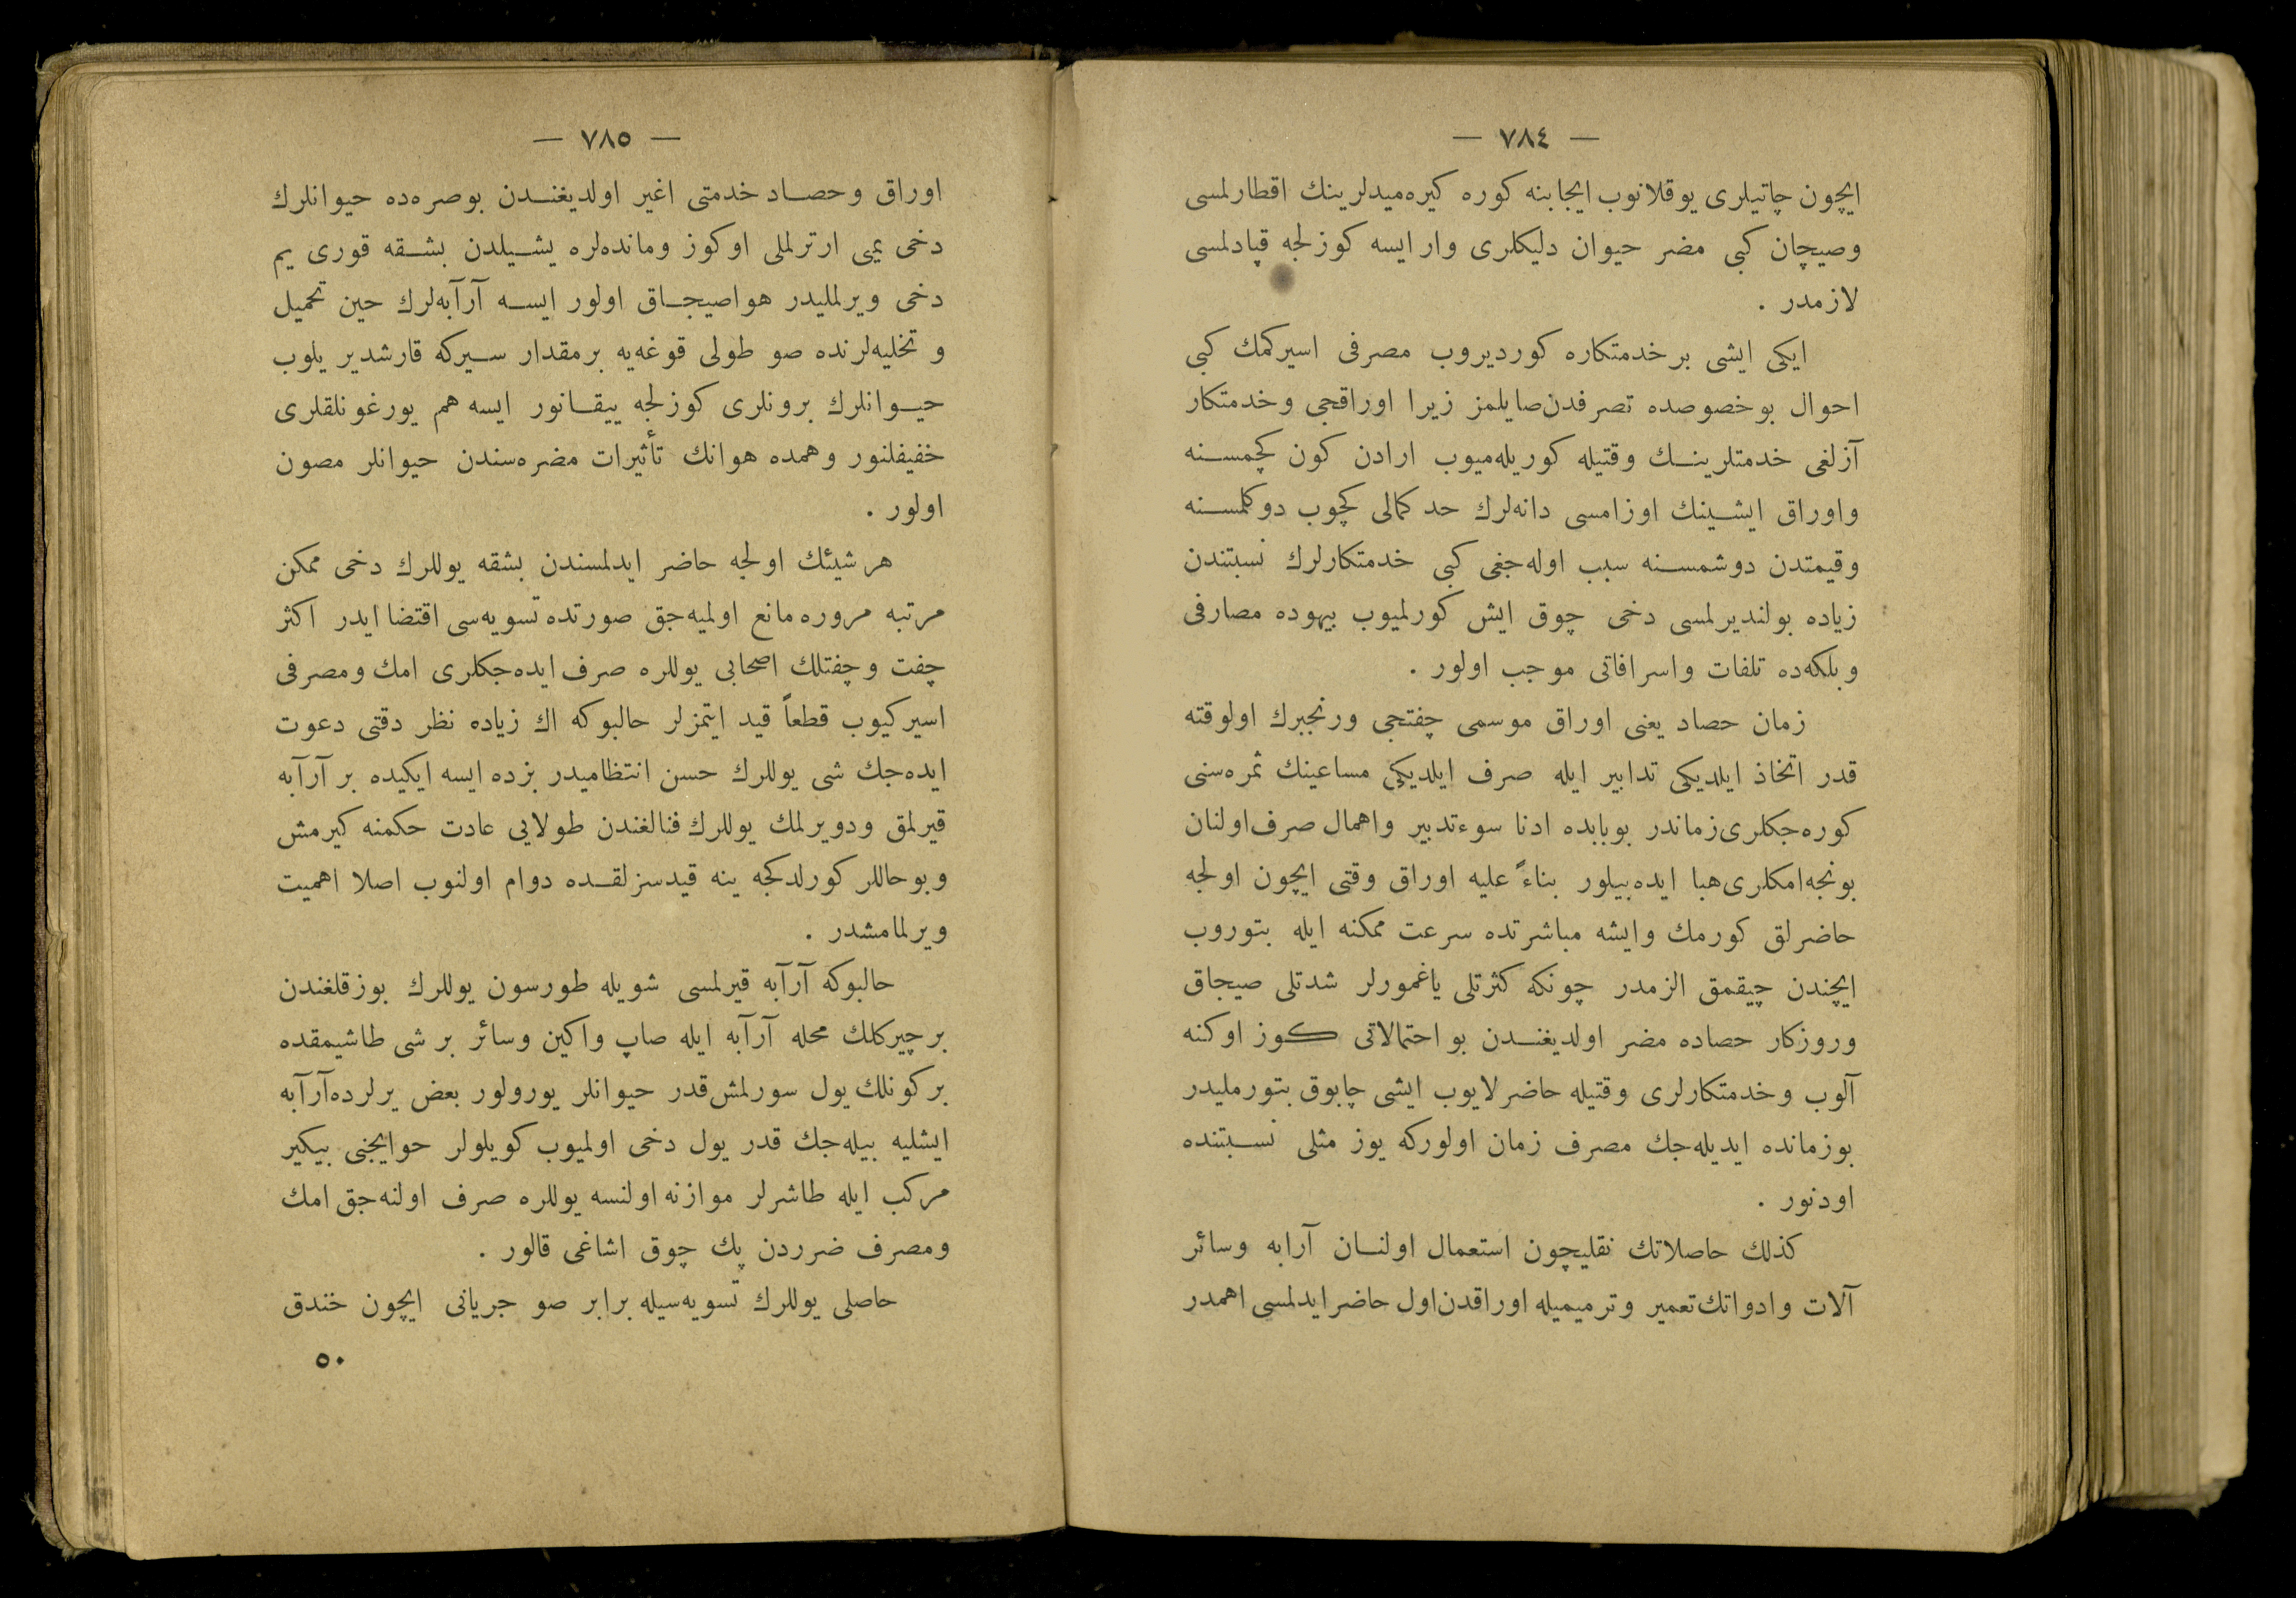 — ٧٨٤ —
ایچون چاتیلری یوقلانوب ایجابنه کوره کیره‌میدلرینك اقطارلمسی
وصیچان کبی مضر حیوان دلیکلری وار ایسه کوزلجه قپادلمسی
لازمدر .
ایکی ایشی برخدمتکاره کوردیروب مصرفی اسیرکمك کبی
احوال بوخصوصده تصرفدن صایلمز زیرا اوراقجی وخدمتکار
آزلغی خدمتلرینـك وقتیله کوریله‌میوب ارادن کون کچمسـنه
واوراق ایشـینك اوزامسی دانه‌لرك حد کمالی کچوب دوکلمسـنه
وقیمتدن دوشمسـنه سبب اوله‌جغی کبی خدمتکارلرك نسبتندن
زیاده بولندیرلمسی دخی چوق ایش کورلمیوب بیهوده مصارفی
وبلکه‌ده تلفات واسرافاتی موجب اولور .
زمان حصاد یعنی اوراق موسمی چفتجی ورنجبرك اولوقته
قدر اتخاذ ایلدیکی تدابیر ایله صرف ایلدیکی مساعینك ثمره‌سنی
کوره‌جکلری زماندر بوبابده ادنا سوءتدبیر واهمال صرف اولنان
بونجه امکلری هبا ایده‌بیلور بناءً علیه اوراق وقتی ایچون اولجه
حاضرلق کورمك وایشه مباشرتده سرعت ممکنه ایله بتوروب
ایچندن چیقمق الزمدر چونکه کثرتلی یاغمورلر شدتلی صیجاق
وروزکار حصاده مضر اولدیغنـدن بو احتمالاتی کوز اوکنه
آلوب وخدمتکارلری وقتیله حاضرلایوب ایشی چابوق بتورملیدر
بوزمانده ایدیله‌جك مصرف زمان اولورکه یوز مثلی نسـبتنده
اودنور .
کذلك حاصلاتك نقلیچون استعمال اولنـان آرابه وسائر
آلات وادواتك تعمیر وترمیمیله اوراقدن اول حاضرایدلمسی اهمدر
— ٧٨٥ —
اوراق وحصـاد خدمتی اغیر اولدیغنـدن بوصره‌ده حیوانلرك
دخی یمی ارترلملی اوکوز ومانده‌لره یشـیلدن بشـقه قوری یم
دخی ویرلملیدر هواصیجـاق اولور ایسـه آرآبه‌لرك حین تحمیل
وتخلیه‌لرنده صو طولی قوغه‌یه برمقدار سـیرکه قارشدیریلوب
حیـوانلرك برونلری کوزلجه ییقـانور ایسه هم یورغونلقلری
خفیفلنور وهمده هوانك تأثیرات مضره‌سندن حیوانلر مصون
اولور .
هرشیئك اولجه حاضر ایدلمسندن بشقه یوللرك دخی ممکن
مرتبه مروره مانع اولمیه‌جق صورتده تسویه‌سی اقتضا ایدر اکثر
چفت وچفتلك اصحابی یوللره صرف ایده‌جکلری امك ومصرفی
اسیرکیوب قطعاً قید ایتمزلر حالبوکه اك زیاده نظر دقتی دعوت
ایده‌جك شی یوللرك حسن انتظامیدر بزده ایسه ایکیده بر آرآبه
قیرلمق ودویرلمك یوللرك فنالغندن طولایی عادت حکمنه کیرمش
وبوحاللر کورلدکجه ینه قیدسزلقـده دوام اولنوب اصلا اهمیت
ویرلمامشدر .
حالبوکه آرآبه قیرلمسی شویله طورسون یوللرك بوزقلغندن
برچیرکلك محله آرآبه ایله صاپ واکین وسائر بر شی طاشیمقده
برکونلك یول سورلمش قدر حیوانلر یورولور بعض یرلرده آرآبه
ایشلیه بیله‌جك قدر یول دخی اولمیوب کویلولر حوایجنی بیکیر
مرکب ایله طاشرلر موازنه اولنسه یوللره صرف اولنه‌جق امك
ومصرف ضرردن پك چوق اشاغی قالور .
حاصلی یوللرك تسویه‌سیله برابر صو جریانی ایچون خندق
٥٠